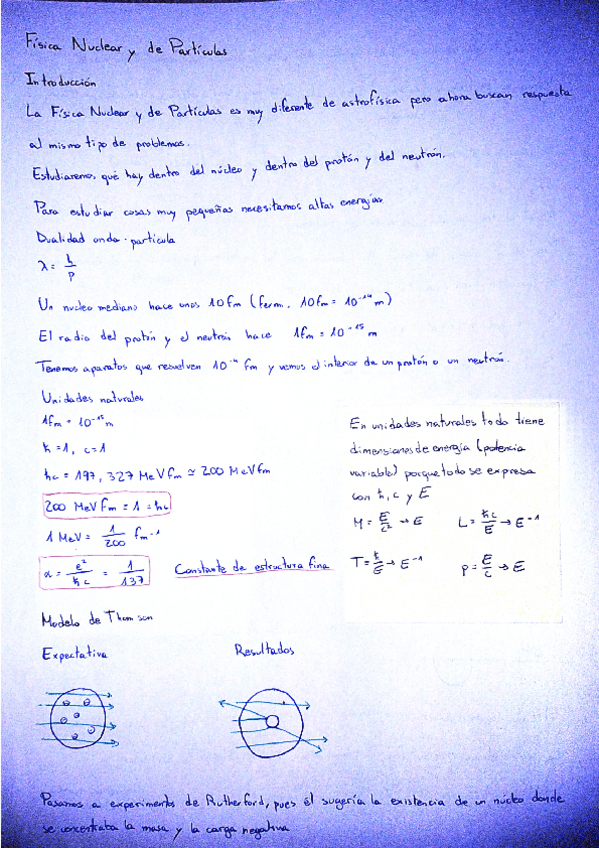 Física Nuclear y de Partículas
Introducción
La Física Nuclear y de Partículas es muy diferente de astrofísica pero ahora buscan respuesta
al mismo tipo de problemas.
Estudiaremos qué hay dentro del núcleo y dentro del protón y del neutrón.
Para estudiar cosas muy pequeñas necesitamos altas energías
Dualidad onda-partícula
λ = h/p
Un nucleo mediano hace unos 10 fm (fermi. 10fm = 10⁻¹⁴ m)
El radio del protón y el neutrón hace 1fm = 10⁻¹⁵ m
Tenemos aparatos que resuelven fm y vemos el interior de un protón o un neutrón.
Unidades naturales
1fm = 10⁻¹⁵ m
ħ = 1, c = 1
ħc = 197,327 MeV fm ≃ 200 MeV fm
200 MeV fm = 1 = ħc
1 MeV = 1/200 fm⁻¹
α = e²/ħc = 1/137 Constante de estructura fina
En unidades naturales todo tiene
dimensiones de energía (potencia
variable) porque todo se expresa
con ħ, c y E
M = E/c² → E L = ħc/E → E⁻¹
T = ħ/E → E⁻¹ p = E/c → E
Modelo de Thomson
Expectativa Resultados
Pasamos a experimentos de Rutherford, pues él sugería la existencia de un nucleo donde
se concentraba la masa y la carga negativa